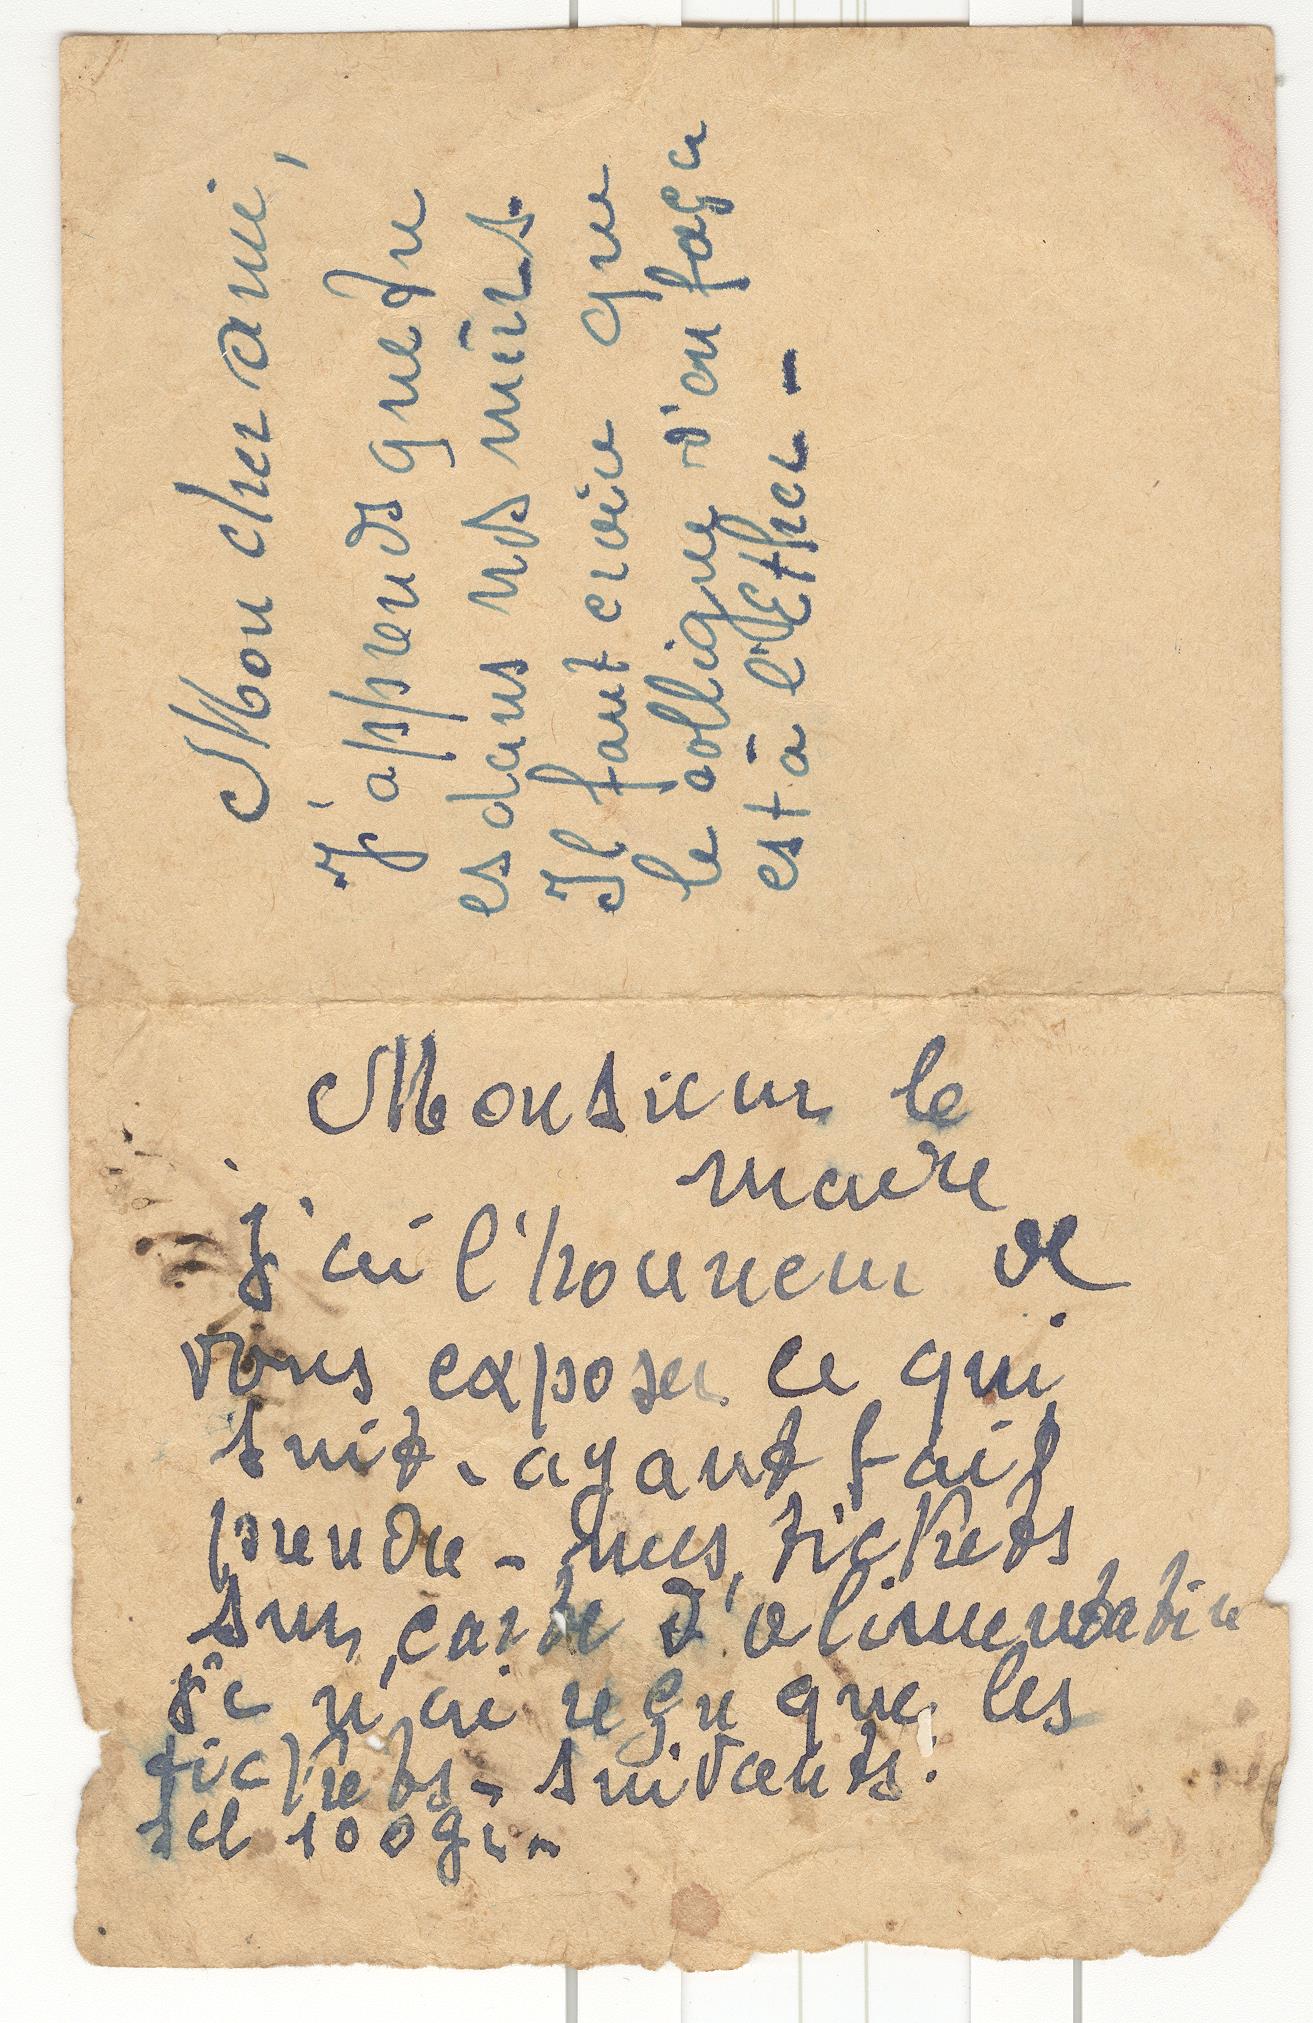 Mon cher ami,
J'apprends que tu
es dans nos mûrs.
Il faut croire que
le collègue d'en face
est à l'Ether -
Monsieur le
maire
J'ai l'honneur de
vous exposer ce qui
suit - ayant fait
prendre - mes tickets
sur carte d'alimentation
je n'ai reçu que les
tickets - suivants:
sel 100 gr -